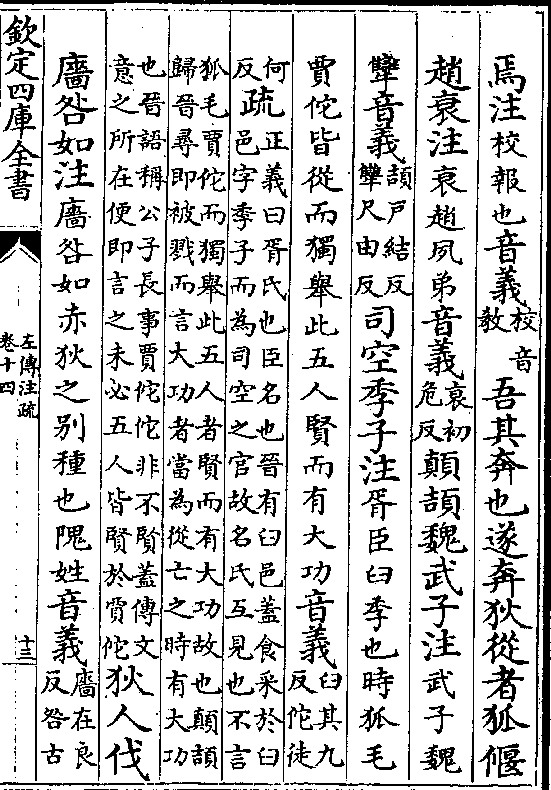 焉注校報也音義校音教吾其奔也遂奔狄從者狐偃
趙衰注衰趙夙弟音義衰初危反顛頡魏武子注武子魏
犨音義頡戸結反犨尺由反司空季子注胥臣臼季也時狐毛
賈佗皆從而獨舉此五人賢而有大功音義臼其九反佗徒
何反疏正義曰胥氏也臣名也晉有臼邑蓋食采於臼邑字季子而為司空之官故名氏互見也不言
狐毛賈佗而獨舉此五人者賢而有大功故也顛頡歸晉尋即被戮而言大功者當為從亡之時有大功
也晉語稱公子長事賈佗佗非不賢蓋傳文意之所在便即言之未必五人皆賢於賈佗狄人伐
廧咎如注廧咎如赤狄之别種也隗姓音義廧在良反咎古
欽定四庫全書
左傳注疏
卷十四
十三